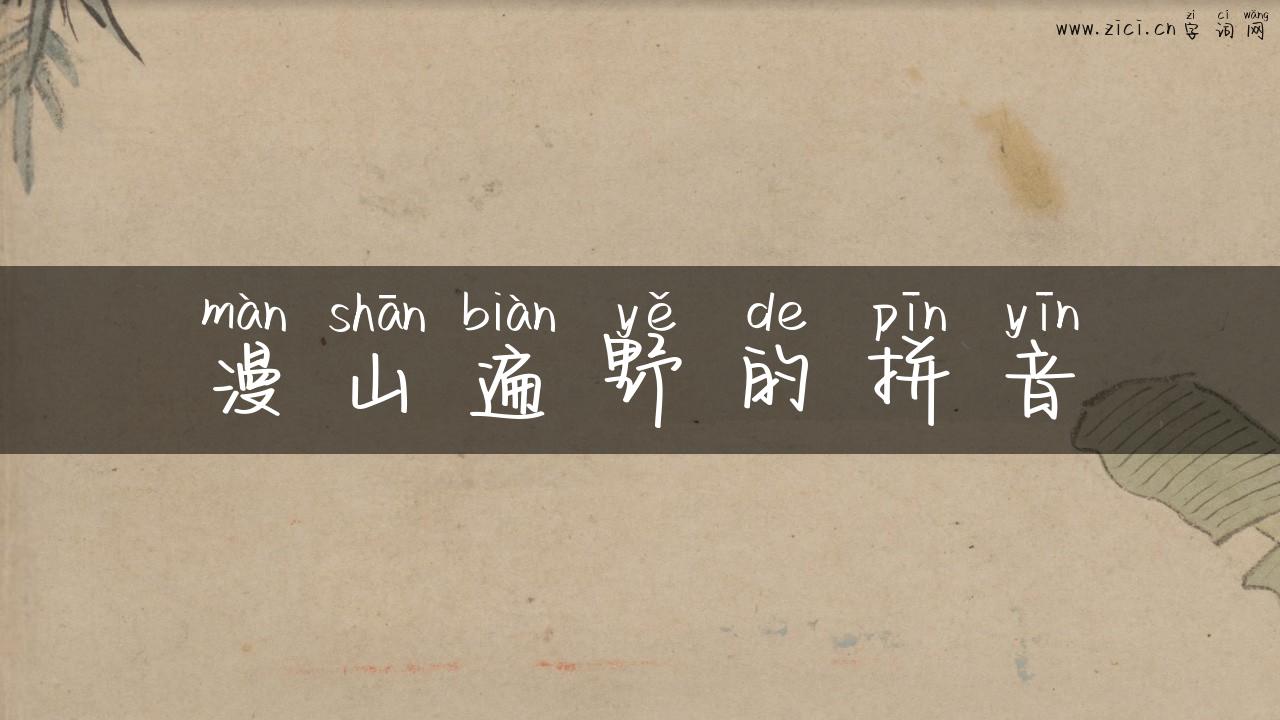 zì cí wǎng
www.zici.cn 字词网
màn shān biàn yě de pīn yīn
漫山遍野的拼音